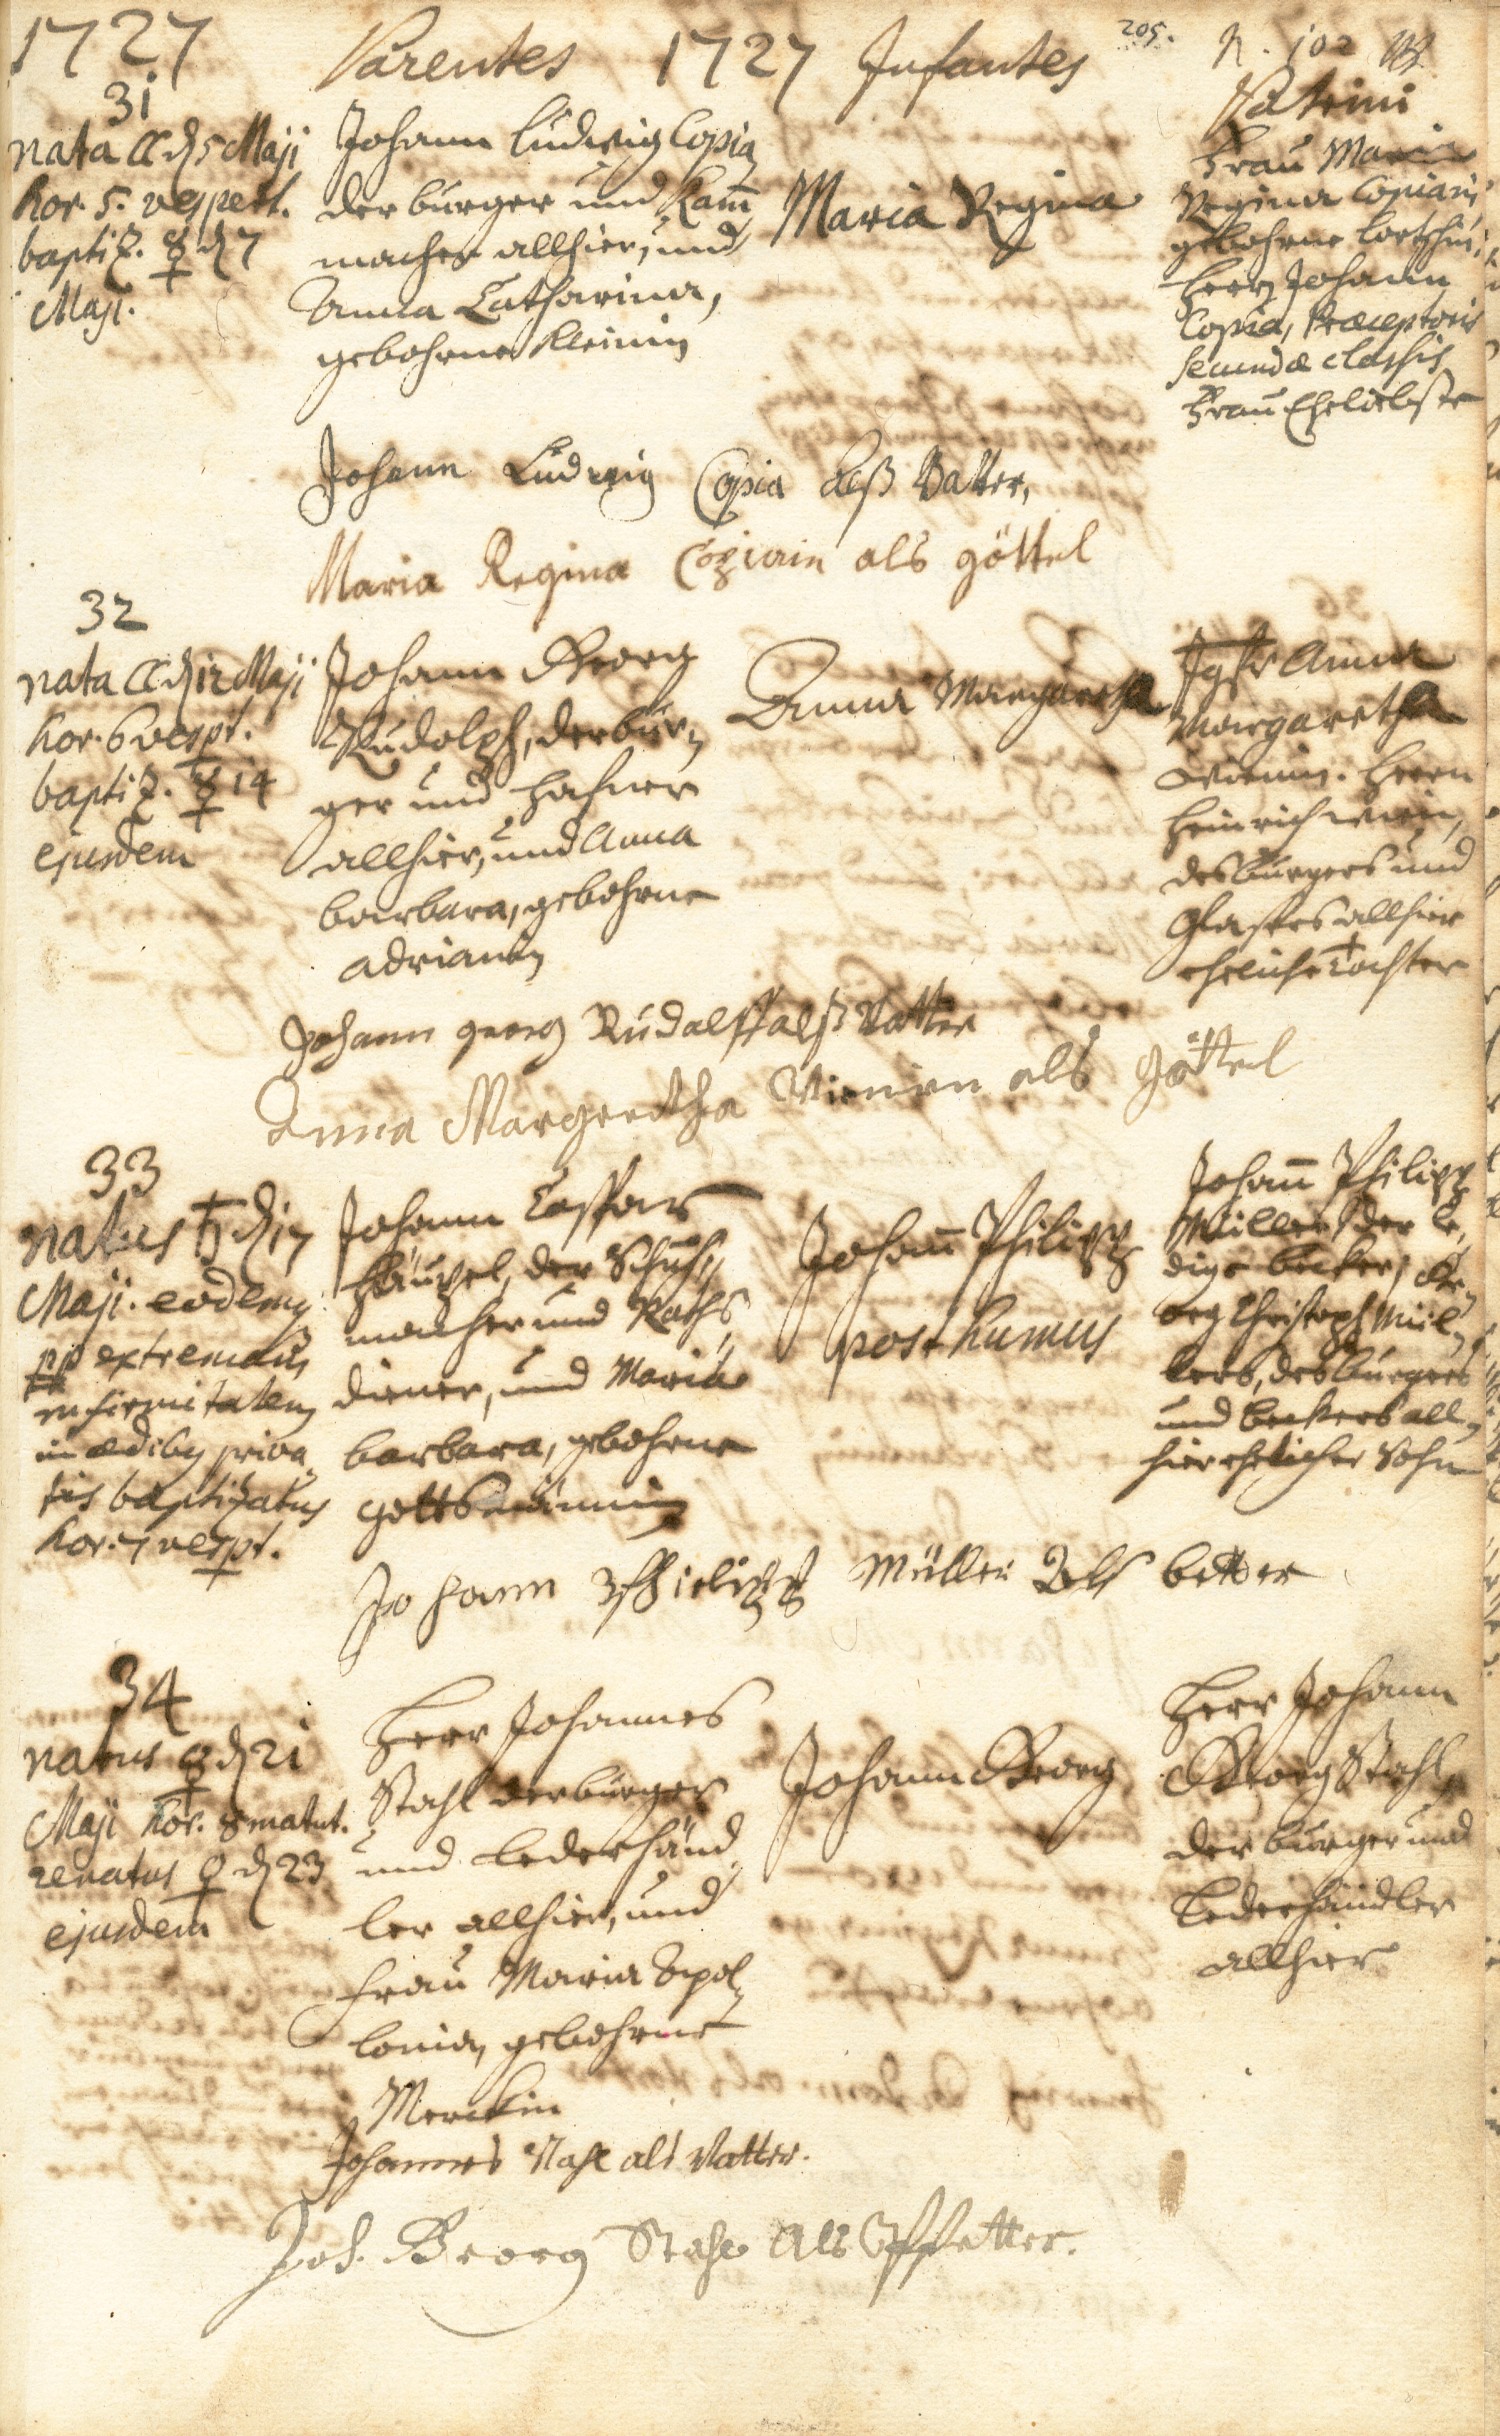 1727 Parentes 1727 Infantes 205. N. 102
Patrini
31
nata ☾ d. 5 Maji
hor. 5. vespert.
baptiz. ☿ d. 7
Maji.
Johann Ludwig Copia
der burger und Kam̄
macher allhier, und
Anna Catharina,
gebohrne Kleinin
Maria Regina
Frau Maria
Regina Copiain
gebohrne
Herrn Johann
Copia, Praeceptoris
secundae classis
Frau Eheliebste
Johann Ludwig Copia alß Vatter,
Maria Regina Copiain als göttel
32
nata ☾ d. 12 Maji
hor. 6 vespt.
baptiz. ☿ 14
ejusdem
Johann Georg
Rudolph, der bur-
ger und hafner
allhier, und Anna
barbara, gebohrne
adrianin
Anna Margaretha
Jgfr Anna
Margaretha
Herrn
Heinrich
des burgers und
Glasers allhier
eheliche Tochter
Johann georg Rudalff alß Vatter
Anna Margretha als Göttel
33
natus ♄ d. 17
Maji. eodemq
pp extremam
infirmitatem
in aedibus priva
tis baptizatus
hor. 7 vespt.
Johann Caspar
der Schuh-
macher und Raths
diener, und Maria
barbara, gebohrne
Johan̄ Philipp
posthumus
Johan̄ Philipp
Müller, der le-
dige becker, Ge-
org Christoph Mül-
lers, des burgers
und beckers all-
hier ehelicher Sohn
Johann Philipp Müller Als better
34
natus ☿ d. 21
Maji hor. 8 matut.
renatus ♀ d. 23
ejusdem
Herr Johannes
Stahl der burger
und Lederhänd
ler allhier, und
Frau Maria Apol-
lonia, gebohrne
Merckin
Johann Georg
Herr Johann
Georg Stahl,
der burger und
Lederhändler
allhier
Johannes Stahl als Vatter.
Joh. Georg Stahl als Pfetter.